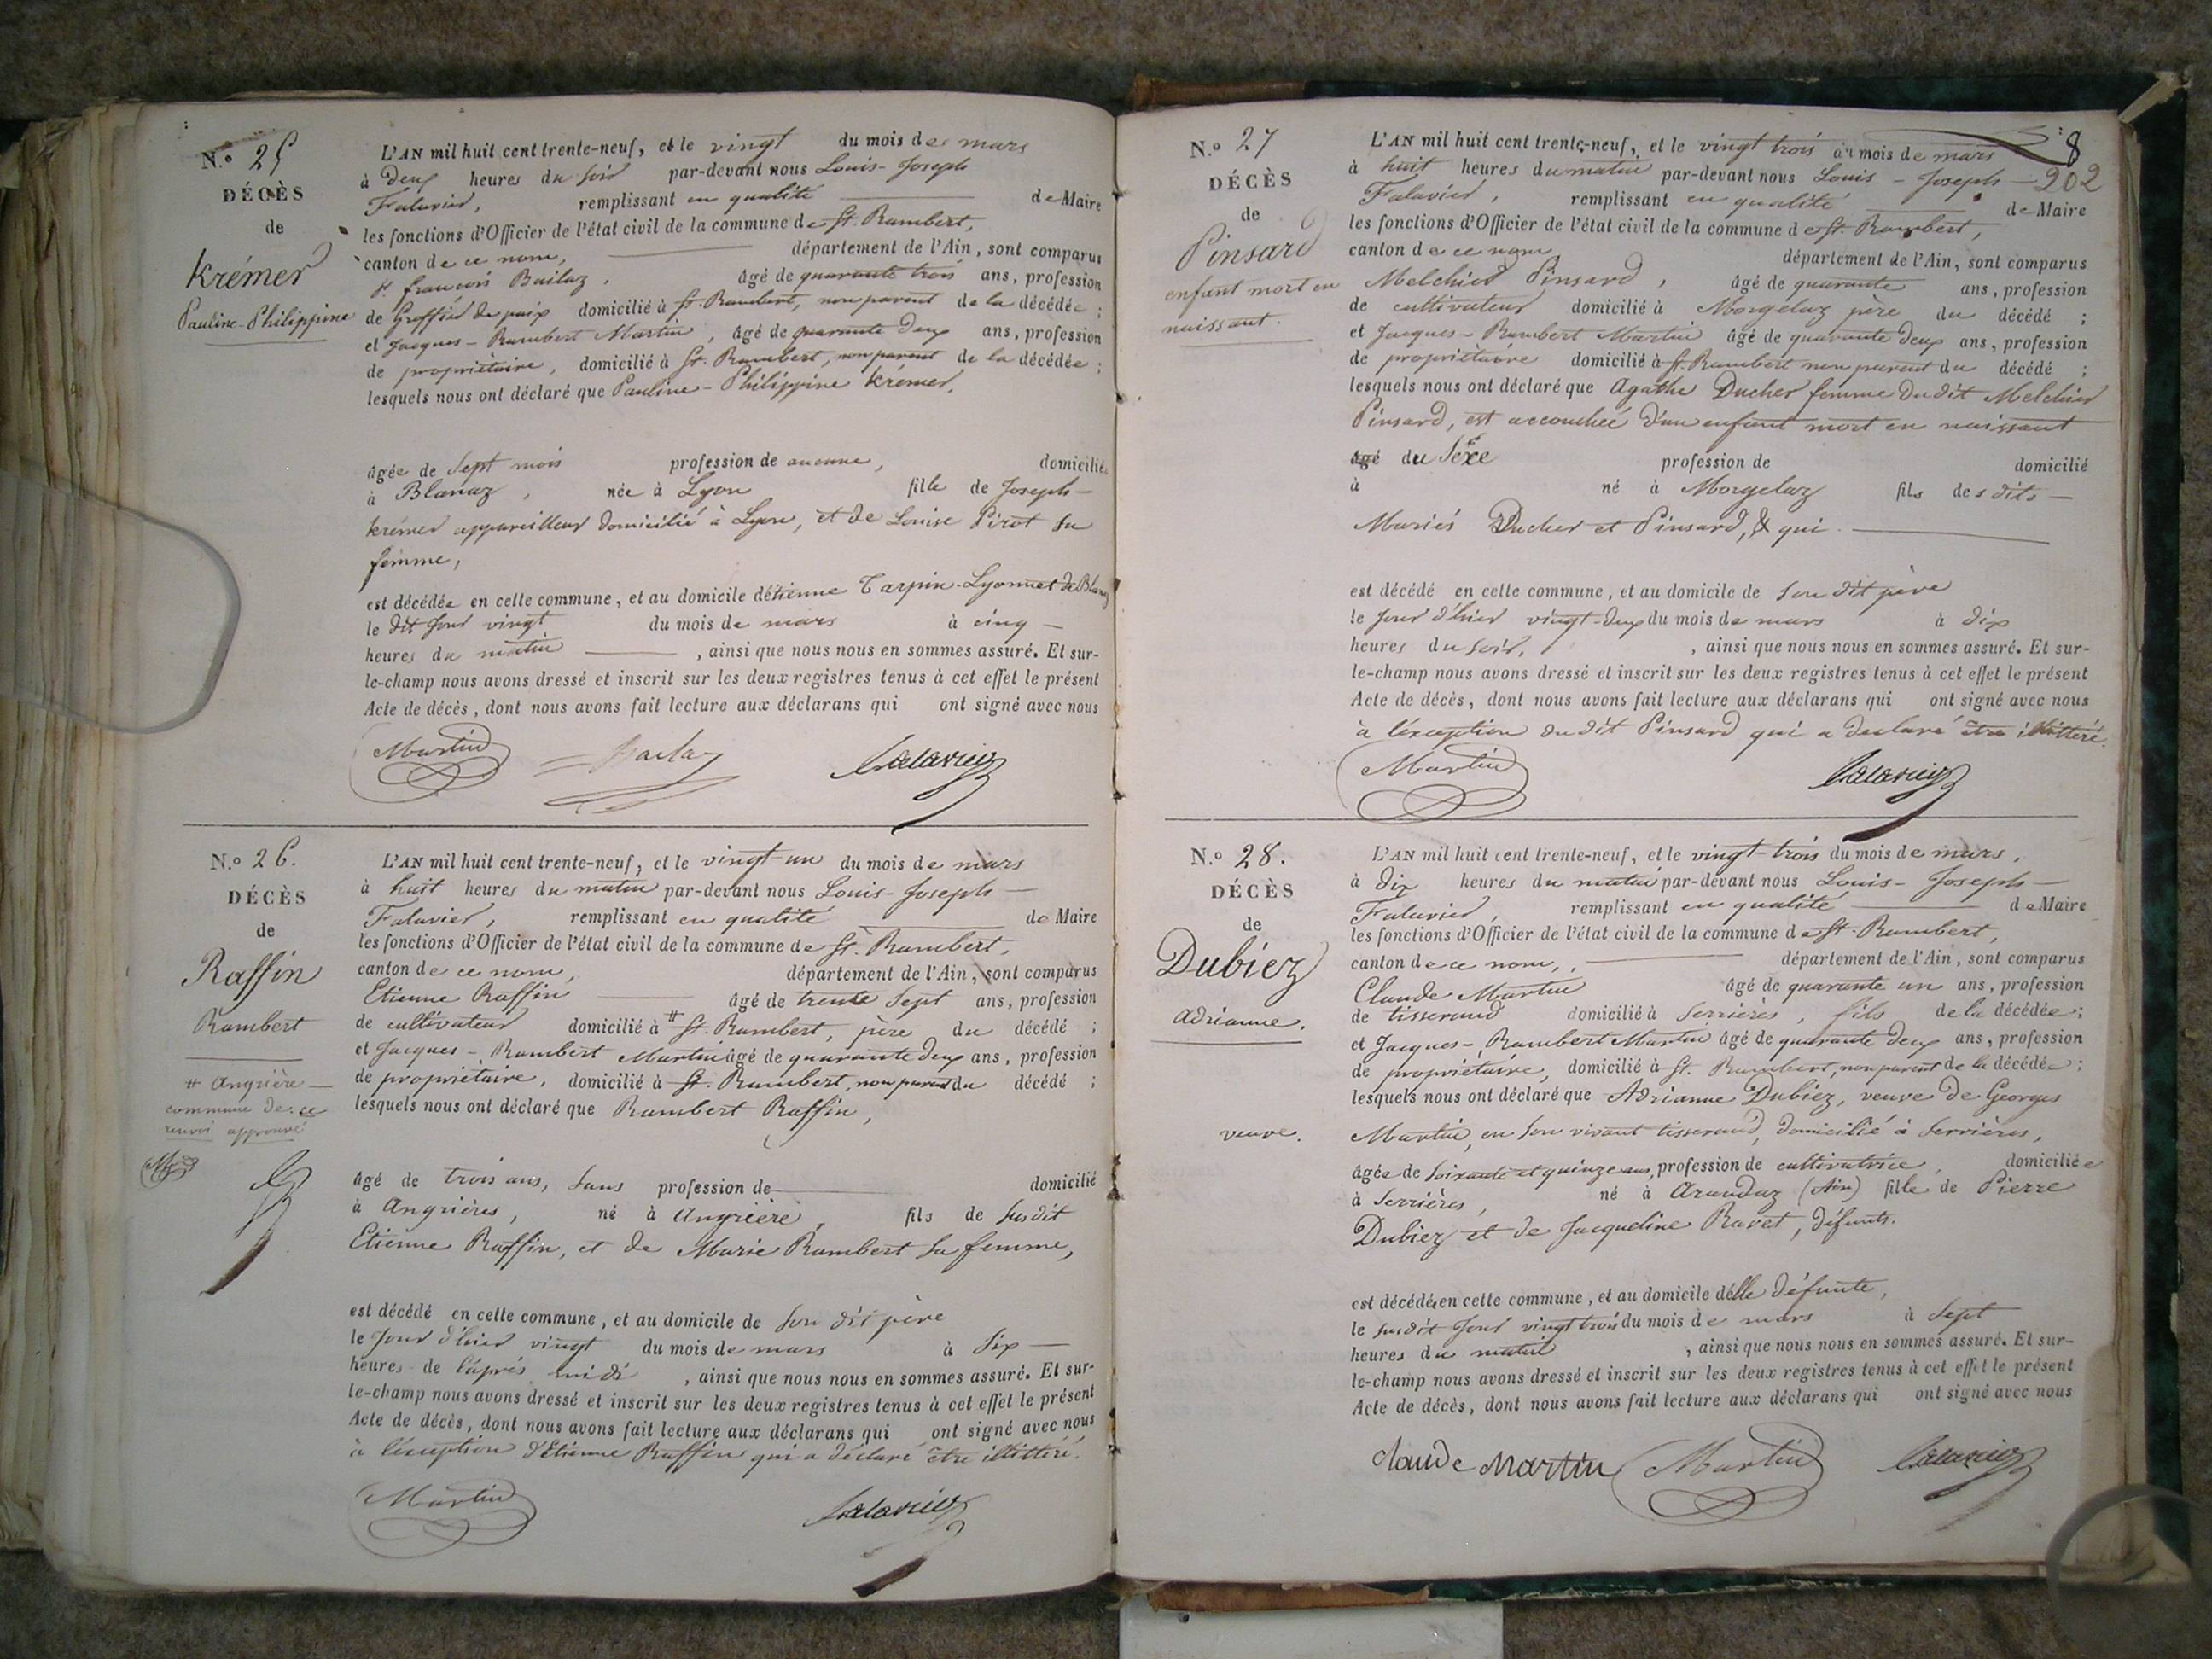 N.o 25
DÉCÈS
de
Krémer
Pauline-Philippine
L'AN mil huit cent trente-neuf, et le vingt du mois de mars
à deux heures du soir par-devant nous Louis-Joseph
Falavier, remplissant en qualité de Maire
les fonctions d'Officier de l'état civil de la commune de St. Rambert,
canton de ce nom, département de l'Ain, sont comparus
Sr. françois Bailaz, âgé de quarante trois ans, profession
de Greffier de paix domicilié à St. Rambert, non parent de la décédée ;
et Jacques-Rambert Martin, âgé de quarante deux ans, profession
de propriétaire, domicilié à St. Rambert, non parent de la décédée ;
lesquels nous ont déclaré que Pauline-Philippine Krémer,
âgée de Sept mois profession de aucune, domiciliée
à Blanaz, née à Lyon fille de Joseph-
Krémer appareilleur domicilié à Lyon, et de Louise Pirot sa
femme,
est décédée en cette commune, et au domicile d'étienne Tarpin-Lyonnet de Blanaz
le dit jour vingt du mois de mars à cinq
heures du matin, ainsi que nous nous en sommes assuré. Et sur-
le-champ nous avons dressé et inscrit sur les deux registres tenus à cet effet le présent
Acte de décès, dont nous avons fait lecture aux déclarans qui ont signé avec nous
Martin Bailaz Falavier
N.o 26.
DÉCÈS
de
Raffin
Rambert
# Angrière
commune de ce
renvoi approuvé
L'AN mil huit cent trente-neuf, et le vingt-un du mois de mars
à huit heures du matin par-devant nous Louis-Joseph
Falavier, remplissant en qualité de Maire
les fonctions d'Officier de l'état civil de la commune de St. Rambert,
canton de ce nom, département de l'Ain, sont comparus
Etienne Raffin âgé de trente Sept ans, profession
de cultivateur domicilié à # St. Rambert, père du décédé ;
et Jacques-Rambert Martin âgé de quarante deux ans, profession
de propriétaire, domicilié à St. Rambert, non parent du décédé ;
lesquels nous ont déclaré que Rambert Raffin,
âgé de trois ans, sans profession de domicilié
à Angrières, né à Angrière, fils de Susdit
Etienne Raffin, et de Marie Rambert sa femme,
est décédé en cette commune, et au domicile de son dit père
le jour d'hier vingt du mois de mars à Six
heures de l'après midi, ainsi que nous nous en sommes assuré. Et sur-
le-champ nous avons dressé et inscrit sur les deux registres tenus à cet effet le présent
Acte de décès, dont nous avons fait lecture aux déclarans qui ont signé avec nous
à l'exception d'Etienne Raffin qui a déclaré être illittéré.
Martin Falavier
8
202
N.o 27
DÉCÈS
de
Pinsard
enfant mort en
naissant.
L'AN mil huit cent trente-neuf, et le vingt trois du mois de mars
à huit heures du matin par-devant nous Louis-Joseph
Falavier, remplissant en qualité de Maire
les fonctions d'Officier de l'état civil de la commune de St. Rambert,
canton de ce nom département de l'Ain, sont comparus
Melchior Pinsard, âgé de quarante ans, profession
de cultivateur domicilié à Morgelaz père du décédé ;
et Jacques-Rambert Martin âgé de quarante deux ans, profession
de propriétaire domicilié à St. Rambert non parent du décédé ;
lesquels nous ont déclaré que Agathe Ducher femme du dit Melchior
Pinsard, est accouchée d'un enfant mort en naissant
âgé du Sexe profession de domicilié
à né à Morgelaz fils des dits
Mariés Ducher et Pinsard, & qui
est décédé en cette commune, et au domicile de son dit père
le jour d'hier vingt-deux du mois de mars à dix
heures du soir, ainsi que nous nous en sommes assuré. Et sur-
le-champ nous avons dressé et inscrit sur les deux registres tenus à cet effet le présent
Acte de décès, dont nous avons fait lecture aux déclarans qui ont signé avec nous
à l'exception du dit Pinsard qui a déclaré être illittéré.
Martin Falavier
N.o 28.
DÉCÈS
de
Dubiez
Adrianne.
veuve.
L'AN mil huit cent trente-neuf, et le vingt-trois du mois de mars,
à dix heures du matin par-devant nous Louis-Joseph
Falavier, remplissant en qualité de Maire
les fonctions d'Officier de l'état civil de la commune de St. Rambert,
canton de ce nom, département de l'Ain, sont comparus
Claude Martin âgé de quarante un ans, profession
de tisserand domicilié à Serrières, fils de la décédée ;
et Jacques-Rambert Martin âgé de quarante deux ans, profession
de propriétaire, domicilié à St. Rambert, non parent de la décédée ;
lesquels nous ont déclaré que Adrianne Dubiez, veuve de Georges
Martin, en son vivant tisserand, domicilié à Serrières,
âgée de soixante et quinze ans, profession de cultivatrice, domiciliée
à Serrières, né à Arandaz (Ain) fille de Pierre
Dubiez et de Jacqueline Ravet, défunts.
est décédée en cette commune, et au domicile d'elle défunte,
le susdit jour vingt trois du mois de mars à Sept
heures du matin, ainsi que nous nous en sommes assuré. Et sur-
le-champ nous avons dressé et inscrit sur les deux registres tenus à cet effet le présent
Acte de décès, dont nous avons fait lecture aux déclarans qui ont signé avec nous
Claude Martin Martin Falavier